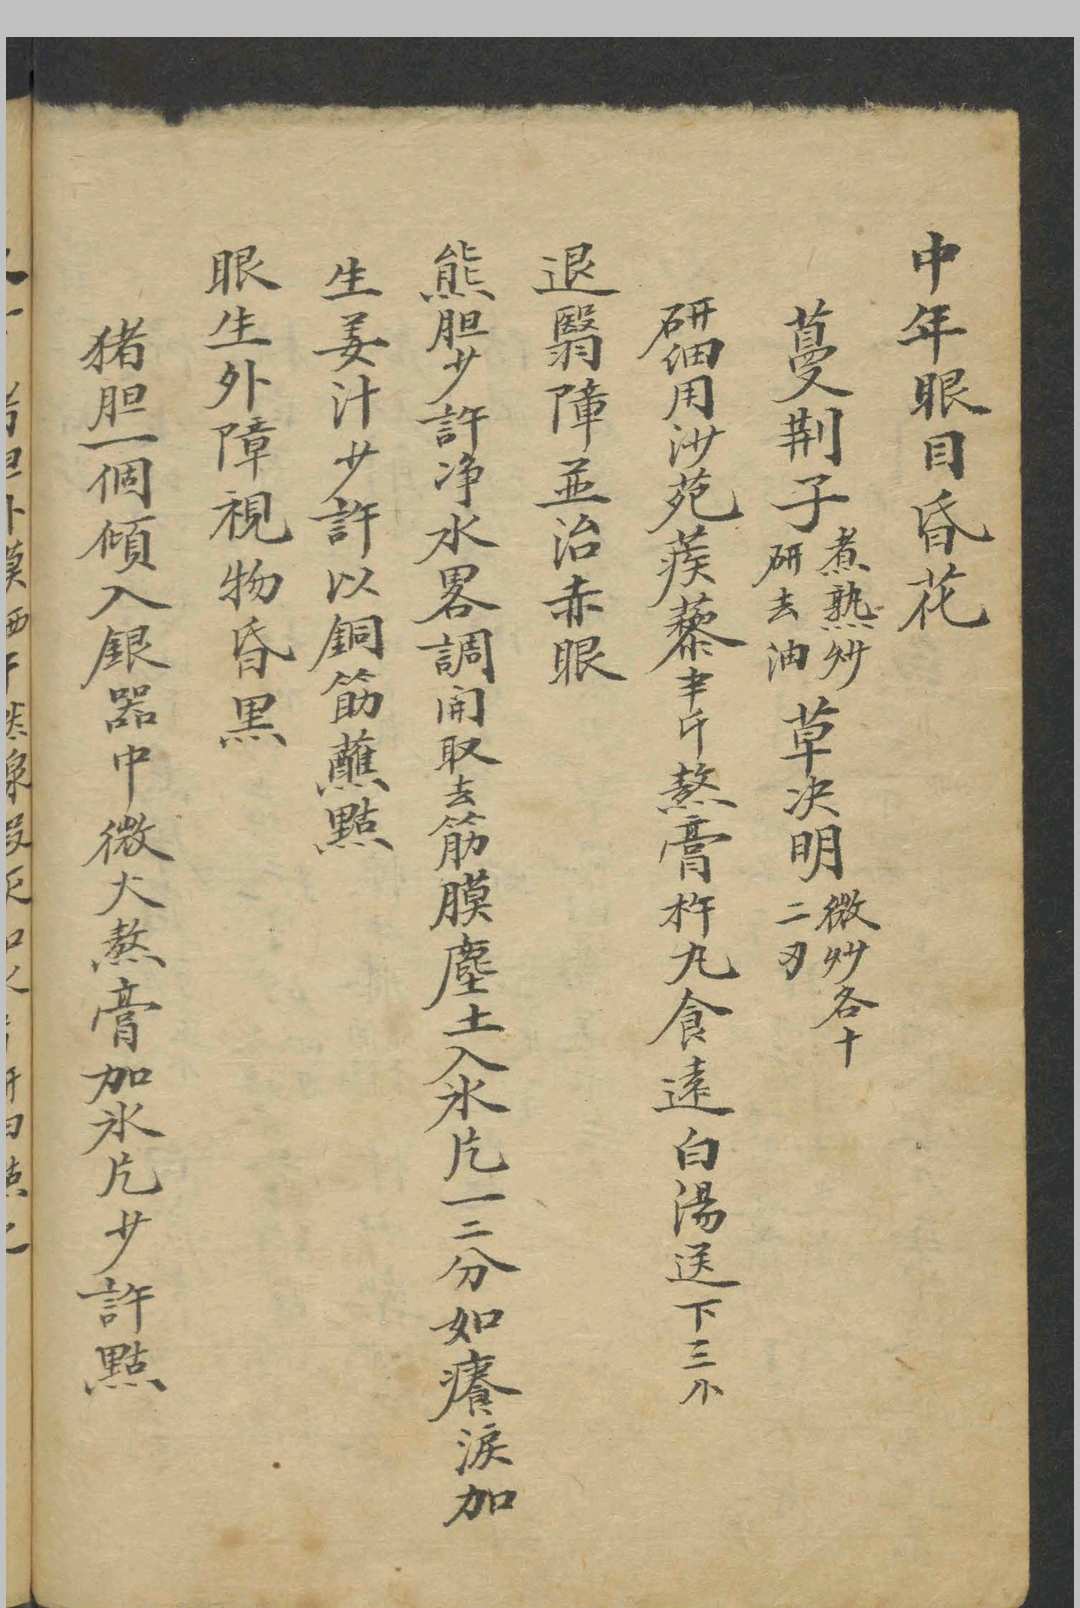 中年眼目昏花
蔓荆子煮熟炒研去油草决明微炒各十二刃
研細用沙苑蒺藜半斤熬膏杵丸食遠白湯送下三小
退翳障並治赤眼
熊胆少許净水畧調開取去筋膜塵土入氷片一二分如癢淚加
生姜汁少許以銅筯蘸點
眼生外障視物昏黒
猪胆一個傾入銀器中微火熬膏加氷片少許點